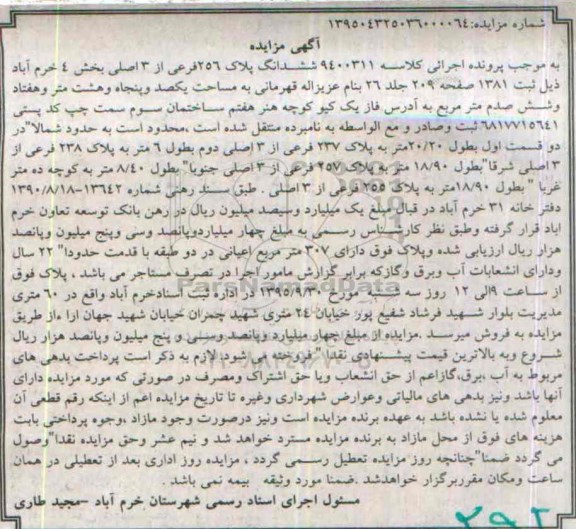 شماره مزایده:۱۳۹۵۰۴۳۲۵۰۳۶۰۰۰۰۶۴
آگهی مزایده
به موجب پرونده اجرائی کلاسه ۹۴۰۰۳۱۱ ششدانگ پلاک ۲۵۶فرعی از ۳ اصلی بخش ۴ خرم آباد
ذیل ثبت ۱۳۸۱ صفحه ۲۰۹ جلد ۲۶ بنام عزیزاله قهرمانی به مساحت یکصد وپنجاه وهشت متر وهفتاد
وشش صدم متر مربع به آدرس فاز یک کیو کوچه هنر هفتم ساختمان سوم سمت چپ کد پستی
۶۸۱۷۷۱۵۶۴۱ ثبت وصادر و مع الواسطه به نامبرده منتقل شده است ،محدود است به حدود شمالا"در
دو قسمت اول بطول ۲۰/۲۰متر به پلاک ۲۳۷ فرعی از ۳ اصلی دوم بطول ۶ متر به پلاک ۲۳۸ فرعی از
۳ اصلی شرقا"بطول ۱۸/۹۰ متر به پلاک ۲۵۷ فرعی از ۳ اصلی جنوبا" بطول ۸/۴۰ متر به کوچه ده متر
غربا "بطول ۱۸/۹۰متر به پلاک ۲۵۵ فرعی از ۳ اصلی . طبق سند رهنی شماره ۱۳۶۴۲-۱۳۹۰/۸/۱۸
دفتر خانه ۳۱ خرم آباد در قبال مبلغ یک میلیارد وسیصد میلیون ریال در رهن بانک توسعه تعاون خرم
اباد قرار گرفته وطبق نظر کارشناس رسمی به مبلغ چهار میلیاردوپانصد وسی وپنج میلیون وپانصد
هزار ریال ارزیابی شده وپلاک فوق دارای ۳۰۷ متر مربع اعیانی در دو طبقه با قدمت حدودا" ۲۲ سال
ودارای انشعابات آب وبرق وگازکه برابر گزارش مامور اجرا در تصرف مستاجر می باشد ، پلاک فوق
از ساعت ۹الی ۱۲ روز سه شنبه مورخ ۱۳۹۵/۹/۳۰ در اداره ثبت اسنادخرم آباد واقع در ۶۰ متری
مدیریت بلوار شهید فرشاد شفیع پور خیابان ۲۴ متری شهید چمران خیابان شهید جهان ارا ،از طریق
مزایده به فروش میرسد .مزایده از مبلغ چهار میلیارد وپانصد وسی و پنج میلیون وپانصد هزار ریال
شروع وبه بالاترین قیمت پیشنهادی نقدا" فروخته می شود، لازم به ذکر است پرداخت بدهی های
مربوط به آب ،برق،گازاعم از حق انشعاب ویا حق اشتراک ومصرف در صورتی که مورد مزایده دارای
آنها باشد ونیز بدهی های مالیاتی وعوارض شهرداری وغیره تا تاریخ مزایده اعم از اینکه رقم قطعی آن
معلوم شده یا نشده باشد به عهده برنده مزایده است ونیز درصورت وجود مازاد ،وجوه پرداختی بابت
هزینه های فوق از محل مازاد به برنده مزایده مسترد خواهد شد و نیم عشر وحق مزایده نقدا"وصول
می گردد ضمنا"چنانچه روز مزایده تعطیل رسمی گردد ، مزایده روز اداری بعد از تعطیلی در همان
ساعت ومکان مقرربرگزار خواهدشد .ضمنا مورد وثیقه بیمه نمی باشد .
مسئول اجرای اسناد رسمی شهرستان خرم آباد -مجید طاری